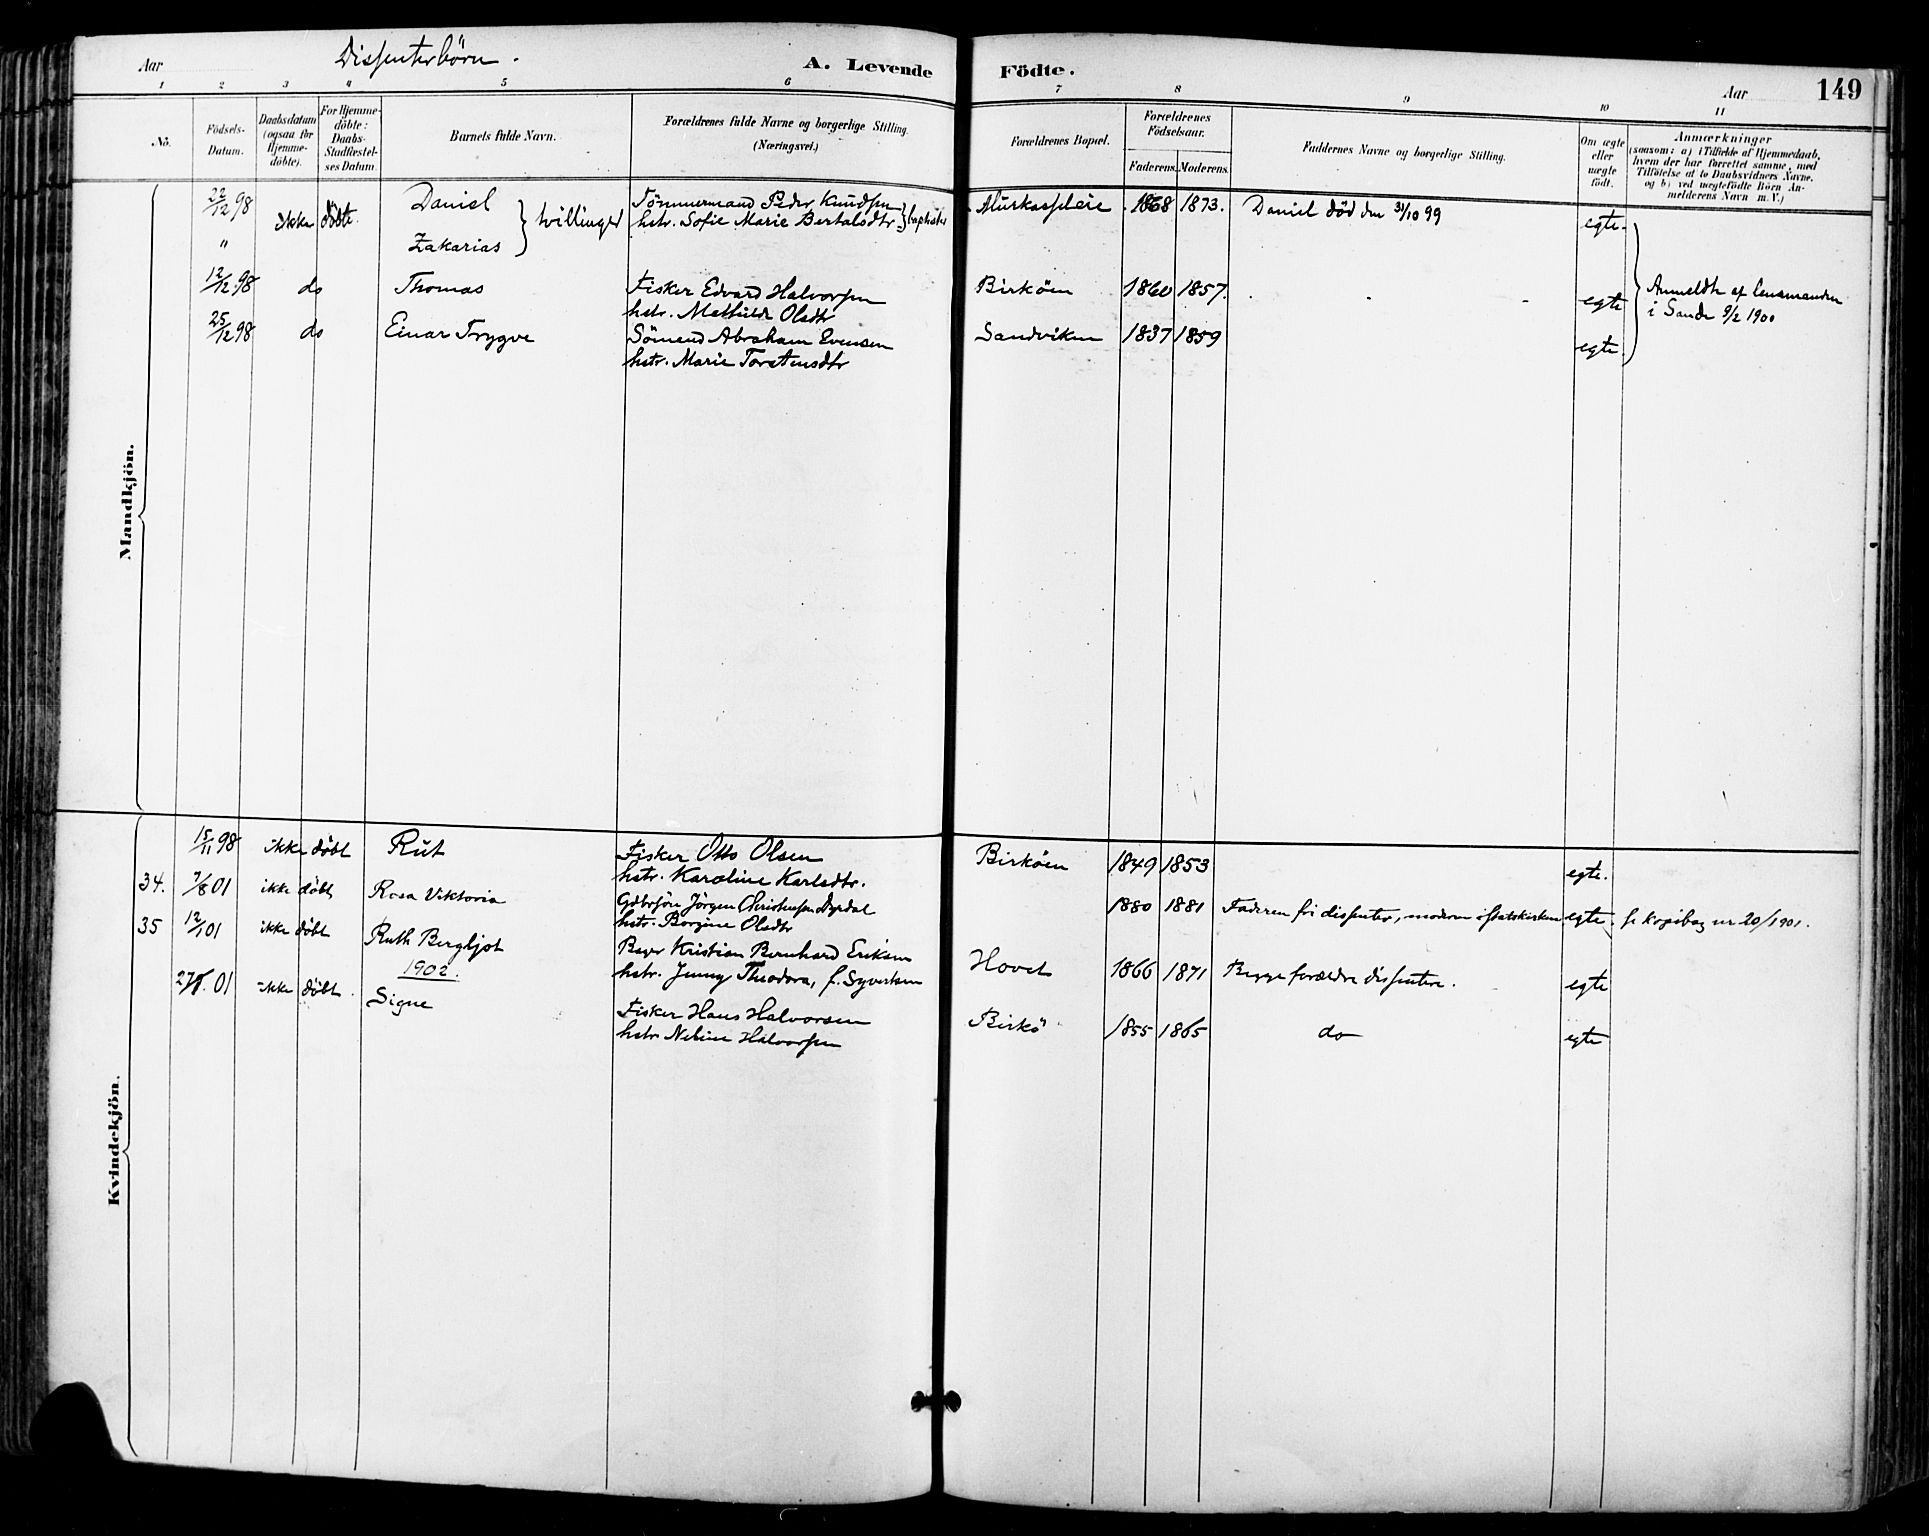 Aar Dissenterbörn. A. Levende Födte. Aar 149
1 2 3 4 5 6 7 8 9 10 11
No. Födsels-Datum. Daabsdatum (ogsaa for Hjemme-döbte). For Hjemme-döbte: Daabs-Stadfæstel-ses Datum. Barnets fulde Navn. Forældrenes fulde Navne og borgerlige Stilling. (Næringsvei.) Forældrenes Bopæl. Forældrenes Födselsaar. Faderens. Moderens. Faddernes Navne og borgerlige Stilling. Om ægte eller uægte födt. Anmærkninger (saasom: a) i Tilfælde af Hjemmedaab, hvem der har forrettet samme, med Tilföielse af to Daabsvidners Navne. og b) ved uægtefödte Börn An-melderens Navn m. V.)
Mandkjön.
22/12 98 ikke döbte. Daniel } tvillinger Tömmermand Peder Knudsen } baptister 1868 1873. Daniel död den 31/10 99 egte.
" Zakarias hstr. Sofie Marie Bertalsdtr
12/12 98 do Thomas Fisker Edvard Halvorsen Birköen 1860 1857. egte Anmeldte af lensmanden
hstr. Mathilde Olsdtr i Sande 9/2 1900
25/12 98 do Einar Trygve Sömend Abraham Evensen Sandviken 1837 1859 egte
hstr. Marie Torstensdtr
Kvindekjön.
15/11 98 ikke döbt Rut Fisker Otto Olsen Birköen 1849 1853 egte.
hstr. Karoline Karlsdtr.
34. 7/8 01 ikke döbt Rosa Viktoria Gdbrsön Jörgen Christensen 1880 1881 Faderen fri dissenter, moderen i statskirken egte. se kopibog nr 20/1901.
hstr. Borgine Olsdtr
35 12/1 01 ikke döbt Ruth Bergljot Kristian Bernhard Eriksen Hovet 1866 1871 Begge forældre dissentere. egte
hstr. Jenny Theodora, f. Syvertsen
1902.
01 ikke döbt. Signe Fisker Hans Halvorsen Birkö 1855 1865 do egte
hstr. Halvorsen